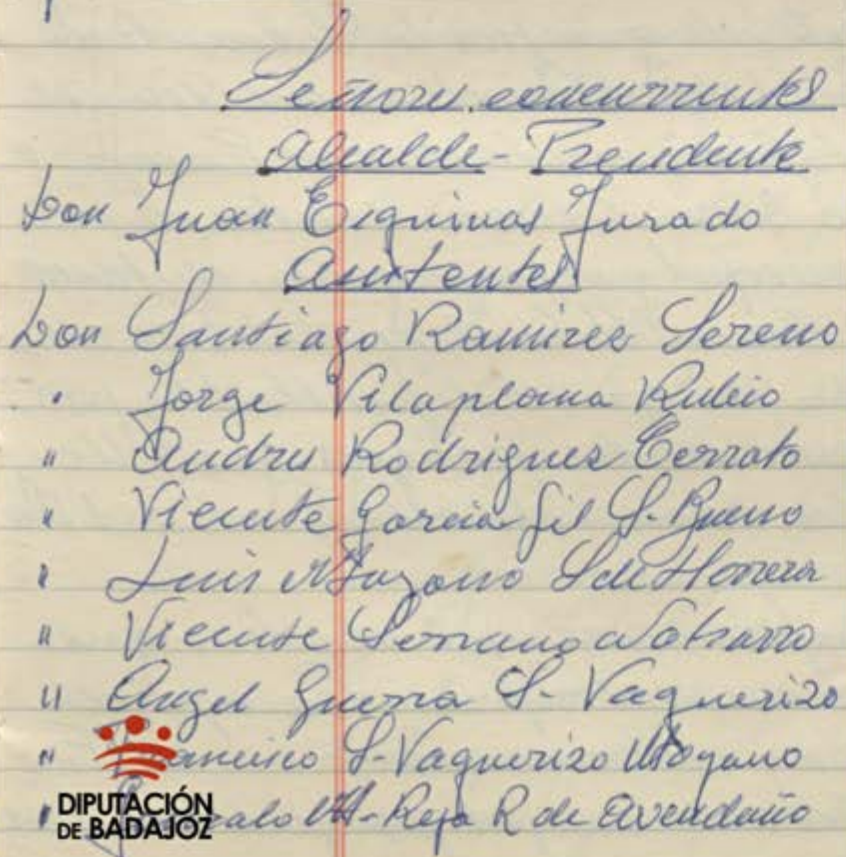 Señores concurrentes
Alcalde-Presidente
Don Juan Esquinas Jurado
Asistentes
Don Santiago Ramirez Sereno
" Jorge Vilaplana Rubio
" Andres Rodriguez Cerrato
" Vicente Garcia Gil S-Bueno
" Luis Mayoano S de Herrera
" Vicente Serrano Navarro
" Angel Guerra S-Vaquerizo
" Francisco S-Vaquerizo Moyano
" Reja R de Avendaño
DIPUTACIÓN
DE BADAJOZ